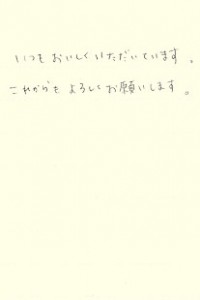 いつもおいしくいただいています。
これからもよろしくお願いします。